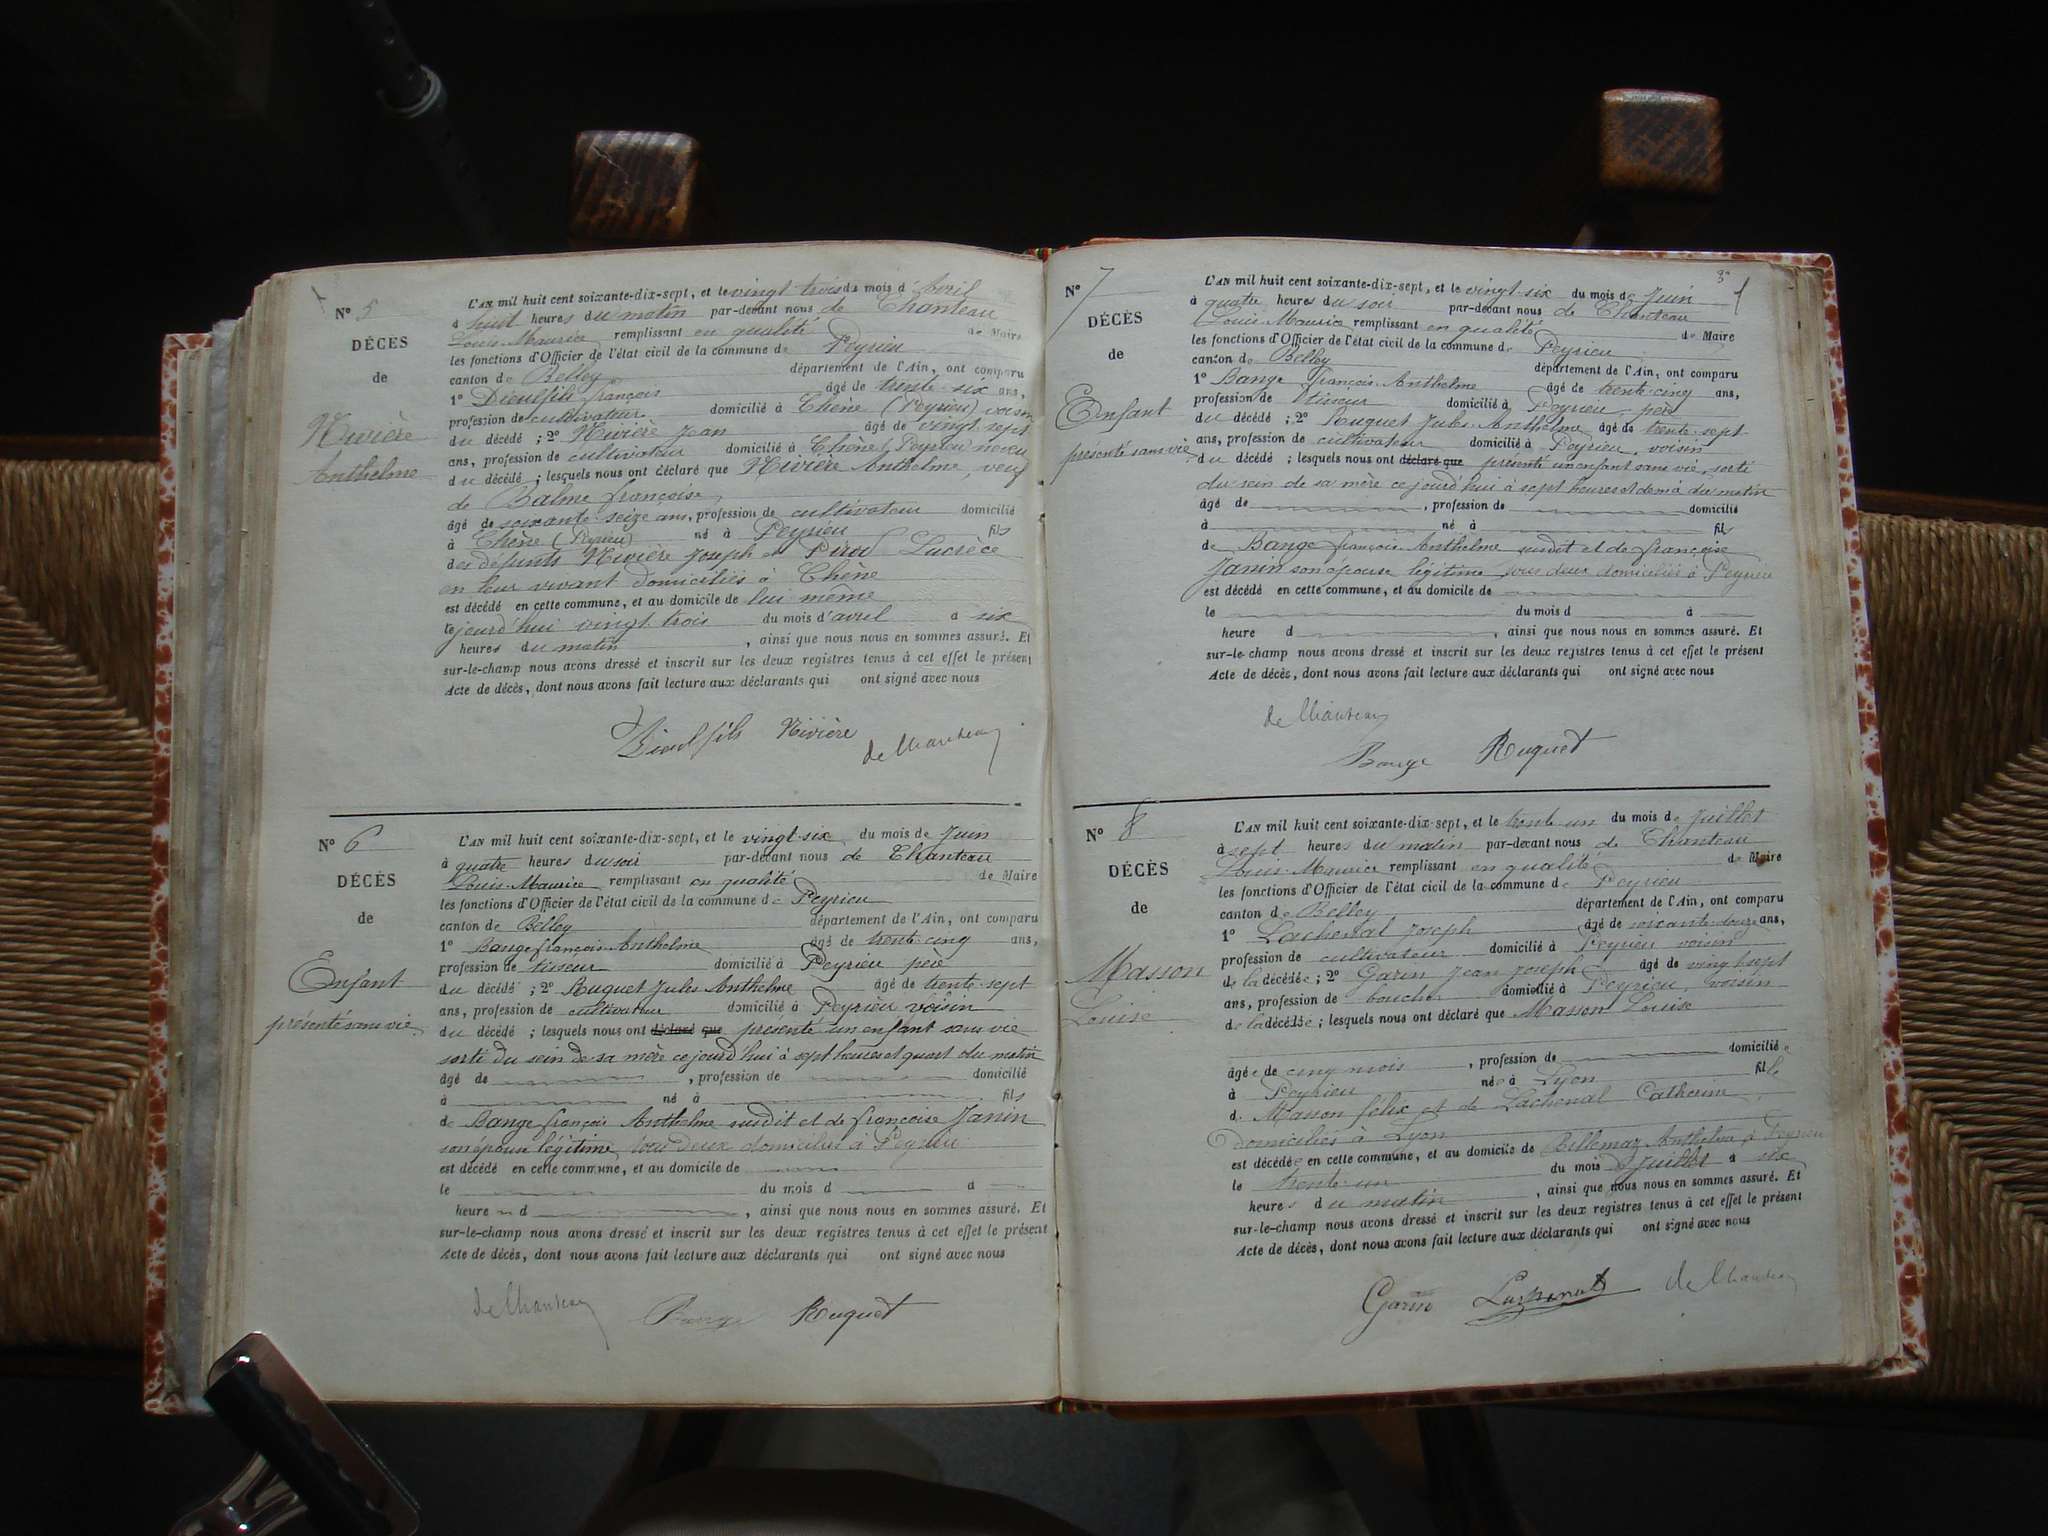 N° 5
DÉCÈS
de
Rivière
Anthelme
L'AN mil huit cent soixante-dix-sept, et le vingt trois du mois d'Avril
à huit heures du matin par-devant nous de Chanteau
Louis Maurice remplissant en qualité de Maire
les fonctions d'Officier de l'état civil de la commune de Peyrieu
canton de Belley département de l'Ain, ont comparu
1° Dieulfils françois âgé de trente-six ans,
profession de cultivateur domicilié à Chêne (Peyrieu) voisin
du décédé ; 2° Rivière Jean âgé de vingt sept
ans, profession de cultivateur domicilié à Chêne (Peyrieu) neveu
du décédé ; lesquels nous ont déclaré que Rivière Anthelme veuf
de Balme françoise
âgé de soixante-seize ans, profession de cultivateur domicilié
à Chêne (Peyrieu) né à Peyrieu fils
des défunts Rivière Joseph et Lucrèce
en leur vivant domiciliés à Chêne
est décédé en cette commune, et au domicile de lui même
le jourd'hui vingt trois du mois d'avril à six
heures du matin, ainsi que nous nous en sommes assuré. Et
sur-le-champ nous avons dressé et inscrit sur les deux registres tenus à cet effet le présent
Acte de décès, dont nous avons fait lecture aux déclarants qui ont signé avec nous
Dieulfils Rivière deChanteau
N° 6
DÉCÈS
de
Enfant
présenté sans vie
L'AN mil huit cent soixante-dix-sept, et le vingt-six du mois de Juin
à quatre heures du soir par-devant nous de Chanteau
Louis-Maurice remplissant en qualité de Maire
les fonctions d'Officier de l'état civil de la commune de Peyrieu
canton de Belley département de l'Ain, ont comparu
1° Bange françois Anthelme âgé de trente-cinq ans,
profession de tisseur domicilié à Peyrieu père
du décédé ; 2° Ruquet Jules Anthelme âgé de trente-sept
ans, profession de cultivateur domicilié à Peyrieu voisin
du décédé ; lesquels nous ont déclaré que présenté un enfant sans vie
sorti du sein de sa mère cejourd'hui à sept heures et quart du matin
âgé de , profession de domicilié
à né à fils
de Bange françois Anthelme susdit et de françoise Janin
son épouse légitime tous deux domiciliés à Peyrieu
est décédé en cette commune, et au domicile de
le du mois d à
heure d , ainsi que nous nous en sommes assuré. Et
sur-le-champ nous avons dressé et inscrit sur les deux registres tenus à cet effet le présent
Acte de décès, dont nous avons fait lecture aux déclarants qui ont signé avec nous
deChanteau Bange Ruquet
N° 7
DÉCÈS
de
Enfant
présenté sans vie
L'AN mil huit cent soixante-dix-sept, et le vingt-six du mois de Juin
à quatre heures du soir par-devant nous de Chanteau
Louis-Maurice remplissant en qualité de Maire
les fonctions d'Officier de l'état civil de la commune de Peyrieu
canton de Belley département de l'Ain, ont comparu
1° Bange françois-Anthelme âgé de trente-cinq ans,
profession de tisseur domicilié à Peyrieu, père
du décédé ; 2° Ruquet Jules-Anthelme âgé de trente-sept
ans, profession de cultivateur domicilié à Peyrieu, voisin
du décédé ; lesquels nous ont déclaré que présenté un enfant sans vie, sorti
du sein de sa mère cejourd'hui à sept heures et demi du matin
âgé de , profession de domicilié
à né à fils
de Bange françois Anthelme susdit et de françoise
Janin son épouse légitime tous deux domiciliés à Peyrieu
est décédé en cette commune, et au domicile de
le du mois d à
heure d , ainsi que nous nous en sommes assuré. Et
sur-le-champ nous avons dressé et inscrit sur les deux registres tenus à cet effet le présent
Acte de décès, dont nous avons fait lecture aux déclarants qui ont signé avec nous
deChanteau
Bange Ruquet
N° 8
DÉCÈS
de
Masson
Louise
L'AN mil huit cent soixante-dix-sept, et le trente-un du mois de Juillet
à sept heures du matin par-devant nous de Chanteau
Louis-Maurice remplissant en qualité de Maire
les fonctions d'Officier de l'état civil de la commune de Peyrieu
canton de Belley département de l'Ain, ont comparu
1° Lachenal Joseph âgé de soixante-douze ans,
profession de cultivateur domicilié à Peyrieu voisin
de la décédée ; 2° Garin Jean Joseph âgé de vingt sept
ans, profession de boucher domicilié à Peyrieu, voisin
de la décédée ; lesquels nous ont déclaré que Masson Louise
âgée de cinq mois, profession de domiciliée
à Peyrieu née à Lyon fille
de Masson félix et de Lachenal Catherine
domiciliés à Lyon
est décédée en cette commune, et au domicile de Billemaz Anthelme à Peyrieu
le trente-un du mois de Juillet à six
heures du matin, ainsi que nous nous en sommes assuré. Et
sur-le-champ nous avons dressé et inscrit sur les deux registres tenus à cet effet le présent
Acte de décès, dont nous avons fait lecture aux déclarants qui ont signé avec nous
Garin Lachenal deChanteau